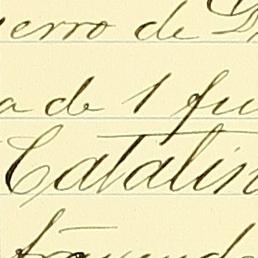 erro de D
a de 1 fu
Catalin